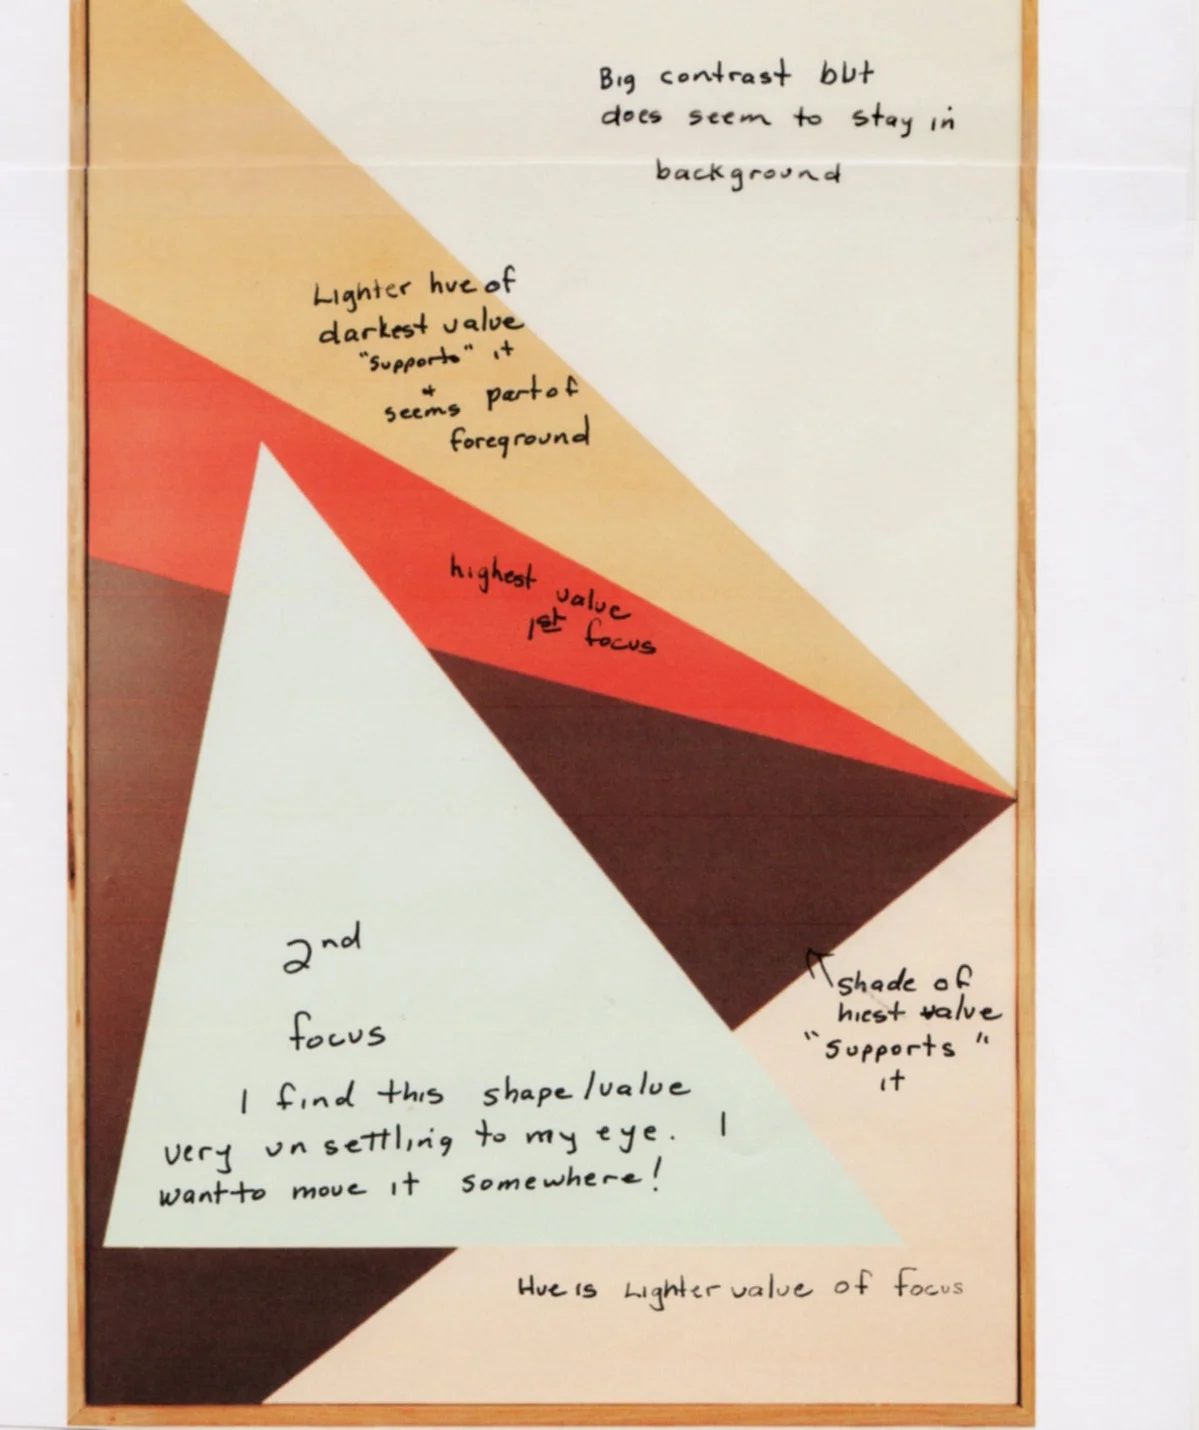 Big contrast but
does seem to stay in
background
Lighter hue of
darkest value
"supports" it
+
seems part of
foreground
highest value
1st focus
2nd
focus
I find this shape/value
very unsettling to my eye. I
want to move it somewhere!
shade of
hiest value
"supports"
it
Hue is Lighter value of focus